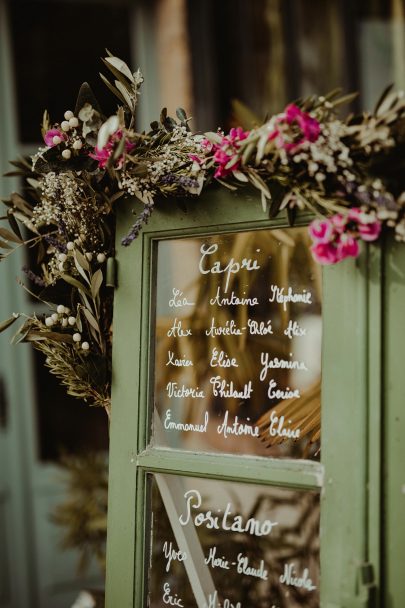 Capri
Léa Antoine Stéphanie
Alex Aurélie-Chloé Alix
Xavier Elise Yasmina
Victoria Thibault Denise
Emmanuel Antoine Claire
Positano
Yves Marie-Claude Nicole